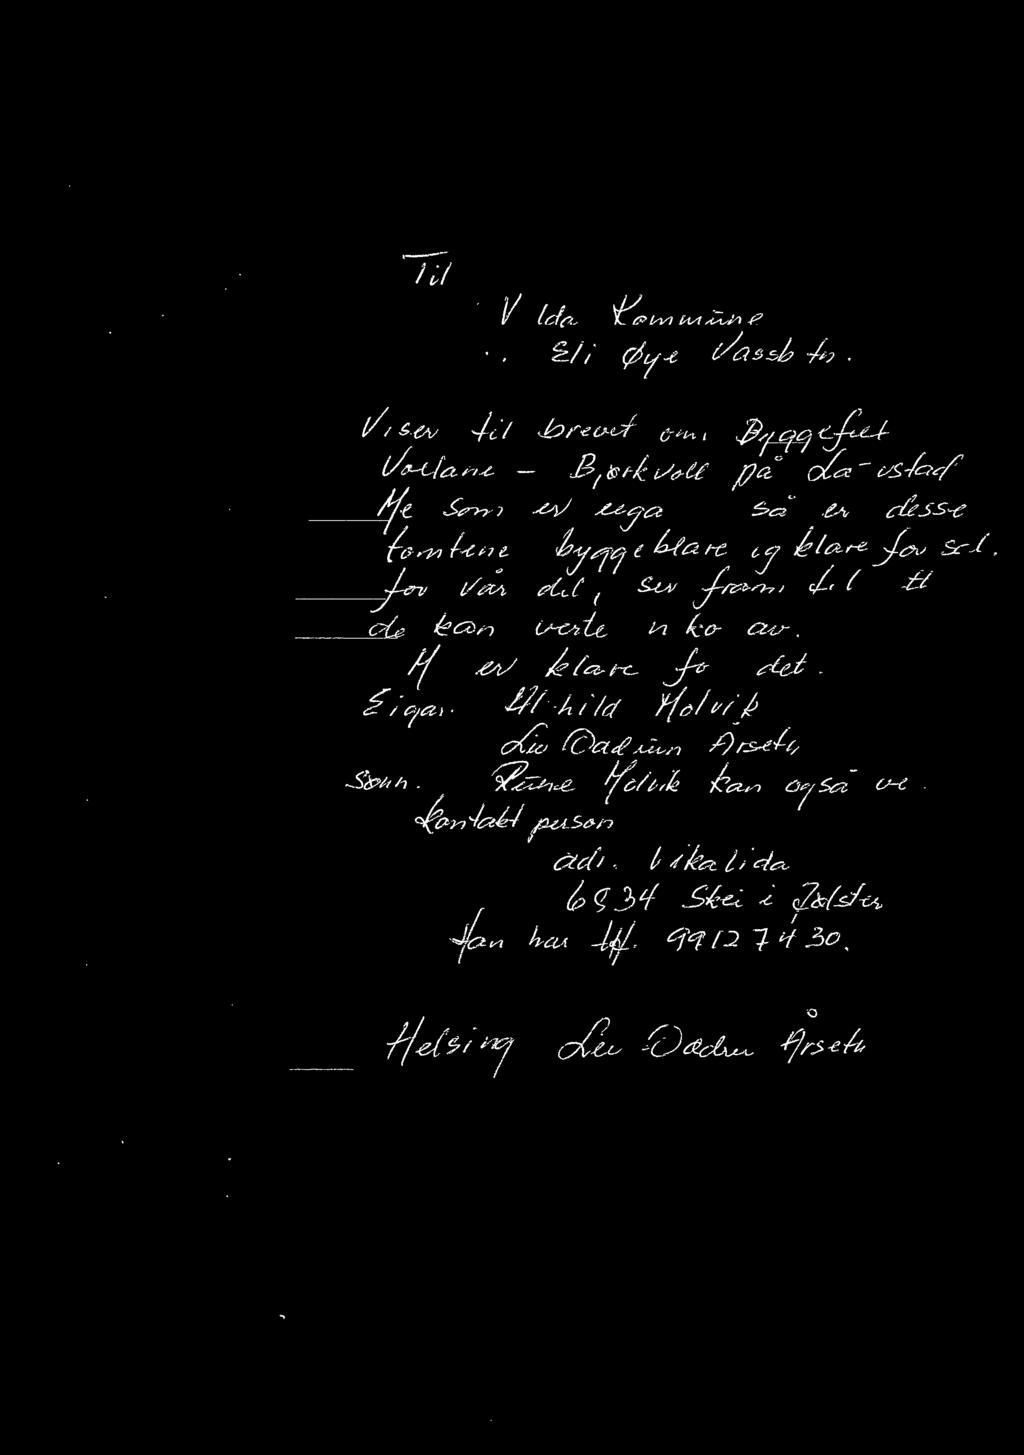 Til
V lda Kommune
Eli Øye Vassbtn.
Viser til brevet om Byggefelt
Vollane - Bjørkvoll på La vstad
Me som er eiga så er desse
tomtene byggeklare og klare for sal.
for vår del, ser fram til tt
de kan verte n ko av.
M er klare fo det.
Eigar. hild Molvik
Liv Årseth
Sonn. Rune Molvik kan også ve
kontakt person
adr. Vikalida
6834 Skei i Jølster
Han har tlf. 99127430.
Helsing Liv Årseth